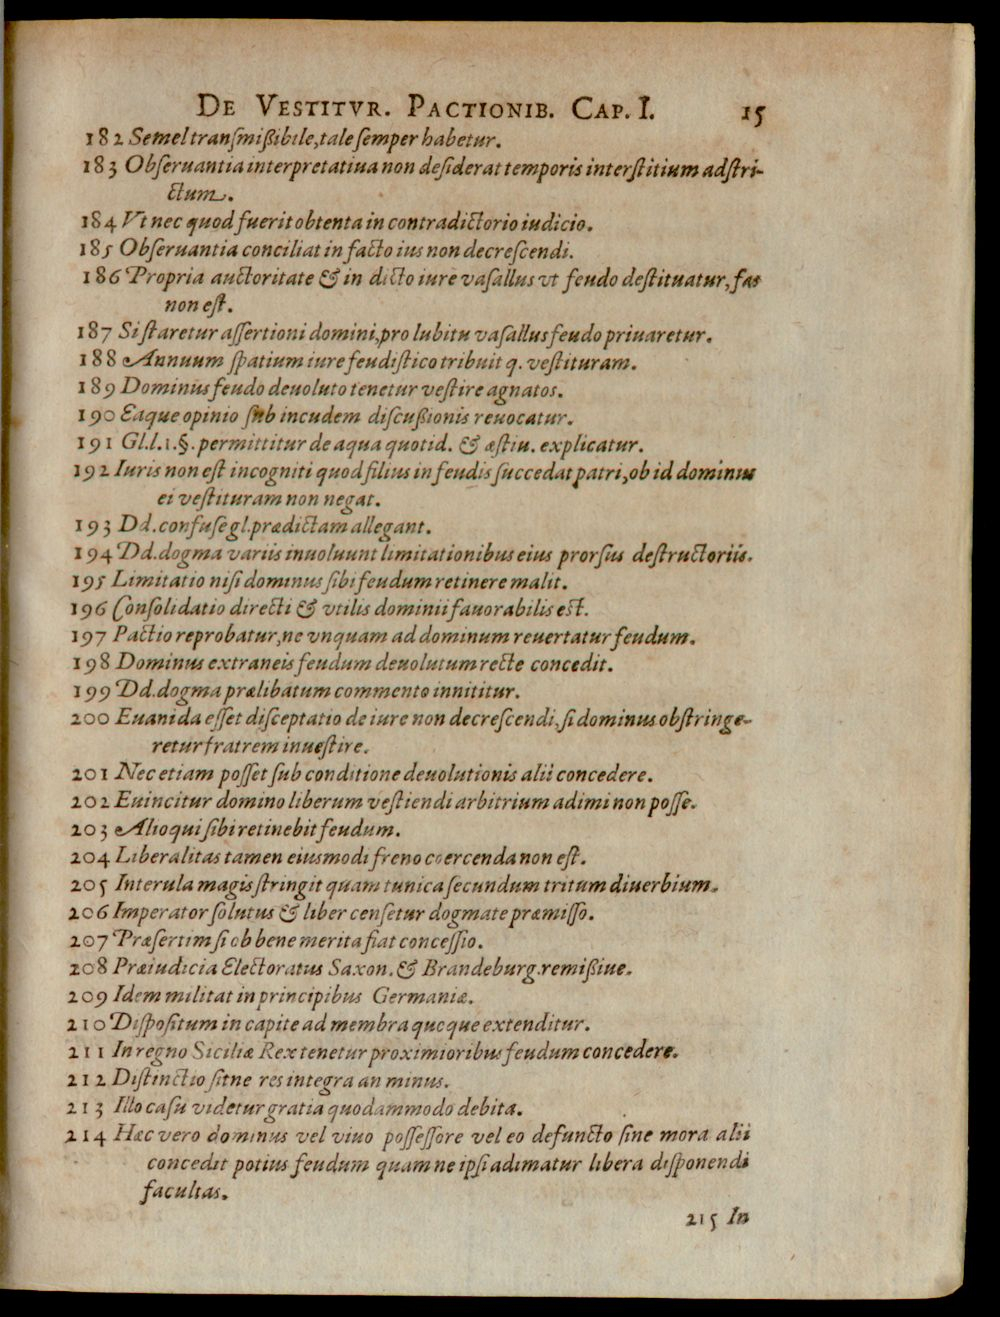 De Vestitvr. Pactionib. Cap. I. 15
182 Semel transmißibile, tale semper habetur.
183 Obseruantia interpretatiua non desiderat temporis interstitium adstri-
ctum.
184 Vt nec quod fuerit obtenta in contradictorio iudicio.
185 Obseruantia conciliat in facto ius non decrescendi.
186 Propria auctoritate & in dicto iure vasallus vt feudo destituatur, fas
non est.
187 Si staretur assertioni domini, pro lubitu vasallus feudo priuaretur.
188 Annuum spatium iure feudistico tribuit q. vestituram.
189 Dominus feudo deuoluto tenetur vestire agnatos.
190 Eaque opinio sub incudem discußionis reuocatur.
191 Gl. l. 1. §. permittitur de aqua quotid. & æstiu. explicatur.
192 Iuris non est incogniti quod filius in feudis succedat patri, ob id dominus
ei vestituram non negat.
193 Dd. confuse gl. prædictam allegant.
194 Dd. dogma variis inuoluunt limitationibus eius prorsus destructoriis.
195 Limitatio nisi dominus sibi feudum retinere malit.
196 Consolidatio directi & vtilis dominii fauorabilis est.
197 Pactio reprobatur, ne vnquam ad dominum reuertatur feudum.
198 Dominus extraneis feudum deuolutum recte concedit.
199 Dd. dogma prælibatum commento innititur.
200 Euanida esset disceptatio de iure non decrescendi, si dominus obstringe-
retur fratrem inuestire.
201 Nec etiam posset sub conditione deuolutionis alii concedere.
202 Euincitur domino liberum vestiendi arbitrium adimi non posse.
203 Alioqui sibi retinebit feudum.
204 Liberalitas tamen eiusmodi freno coercenda non est.
205 Interula magis stringit quam tunica secundum tritum diuerbium.
206 Imperator solutus & liber censetur dogmate præmisso.
207 Præsertim si ob bene merita fiat concessio.
208 Præiudicia Electoratus Saxon. & Brandeburg. remißiue.
209 Idem militat in principibus Germaniæ.
210 Dispositum in capite ad membra quoque extenditur.
211 In regno Siciliæ Rex tenetur proximioribus feudum concedere.
212 Distinctio sitne res integra an minus.
213 Illo casu videtur gratia quodammodo debita.
214 Hac vero dominus vel viuo possessore vel eo defuncto sine mora alii
concedit potius feudum quam ne ipsi adimatur libera disponendi
facultas.
215 In